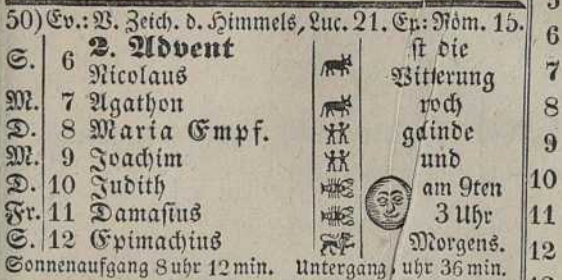 50) Ev.: V. Zeich. d. Himmels, Luc. 21. Ep.: Röm. 15.
S. 6 2. Advent ist die
Nicolaus Witterung
M. 7 Agathon noch
D. 8 Maria Empf. gelinde
M. 9 Joachim und
D. 10 Judith am 9ten
Fr. 11 Damasius 3 Uhr
S. 12 Epimachius Morgens.
Sonnenaufgang 8 uhr 12 min. Untergang, uhr 36 min.
6
7
8
9
10
11
12